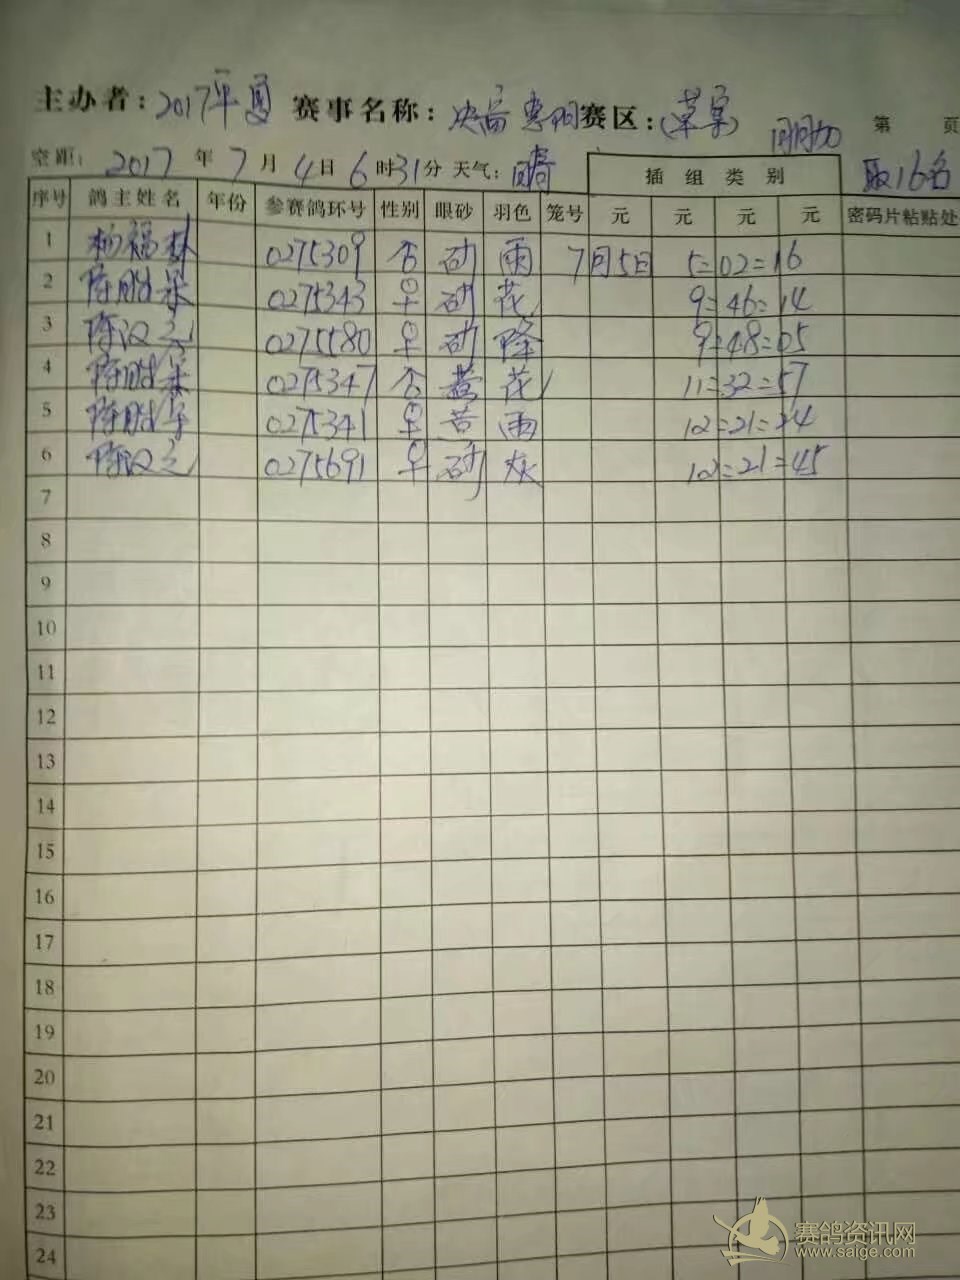 主办者: 2017年夏 赛事名称: 决赛 惠阳 赛区: (草窝)
第 页
空距: 2017 年 7 月 4日 6 时31分 天气: 晴 插组类别 取16名
序号 鸽主姓名 年份 参赛鸽环号 性别 眼砂 羽色 笼号 元 元 元 元 密码片粘贴处
1 杨福林 0275309 砂 雨 7月5日 5:02=16
2 0275343 砂 花 9:46=14
3 陈汉 0275580 砂 绛 9:48=05
4 0275347 黄 花 11=32=57
5 0275341 黄 雨 12=21=24
6 陈汉 0275691 砂 灰 12=21=45
7
8
9
10
11
12
13
14
15
16
17
18
19
20
21
22
23
24
赛鸽资讯网
www.saige.com